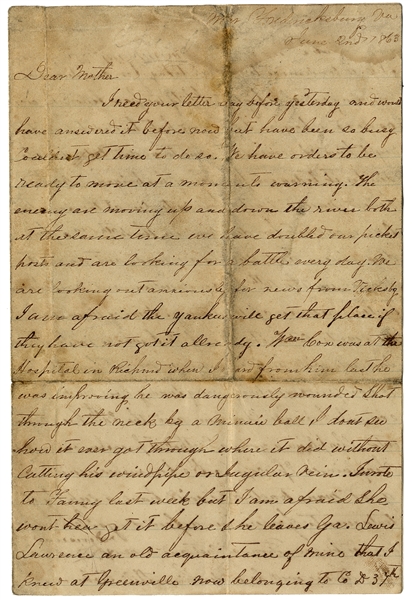 Near Fredericksburg Va
June 2nd 1863
Dear Mother
I recd your letter day before yesterday and would
have answered it before now but have been so busy
I couldnt get time to do so. We have orders to be
ready to move at a moments warning. The
enemy are moving up and down the river both
at the same time we have doubled our picket
posts and are looking for a battle every day. We
are looking out anxiously for news from Vicksbg
I am afraid the yankees will get that place if
they have not got it allready. Cox was at the
Hospital in Richmd when I heard from him last he
was improving he was dangerously wounded Shot
through the neck by a minnie ball I dont see
how it ever got through where it did without
Cutting his windpipe or Jugular Vein. I wrote
to Fanny last week but I am afraid She
wont get it before She leaves Ga. Lewis
Lawrence an old acquaintance of mine that I
knew at Greenville now belonging to Co D 3